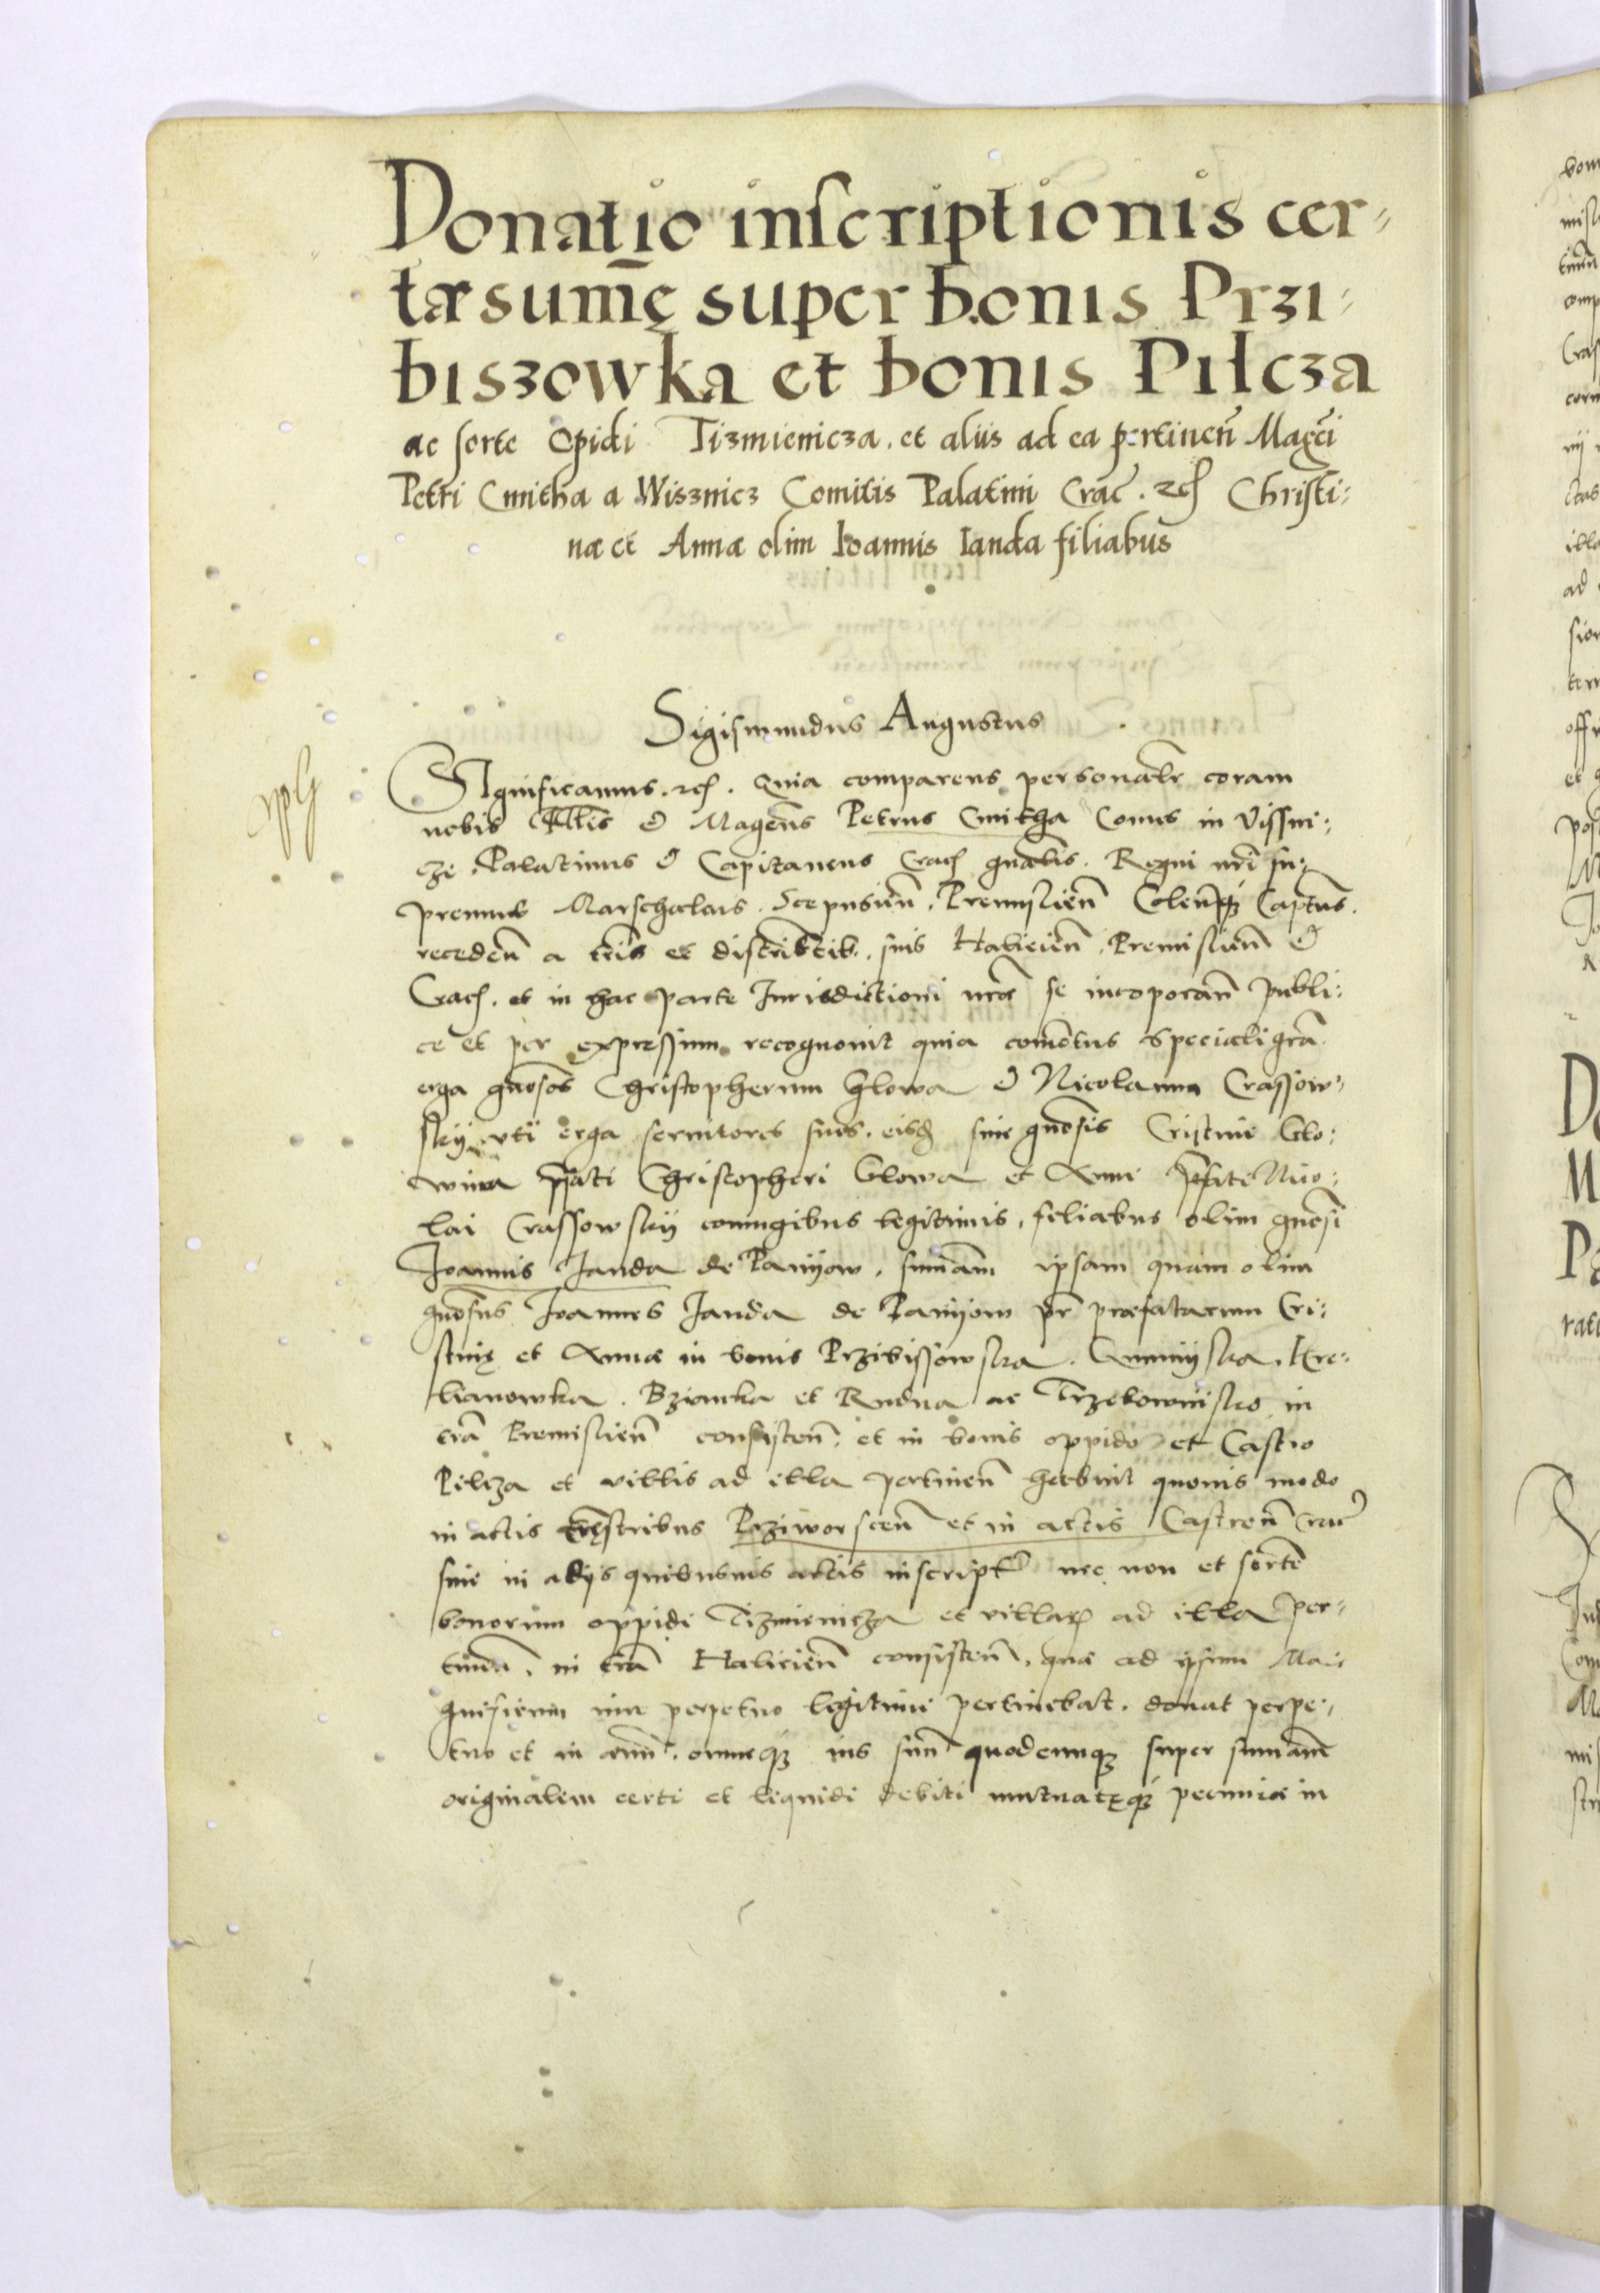 Donatio inscriptionis cer⸗
tæ sum̅ę super bonis Przi⸗
biszowka et bonis Pilcza
ac sorte Opidi Tizmienicza. et aliis ad ea pertinen̅ Mag̅ci
Petri Cmitha a Wisznicz Comitis Palatini Crac̅. etc̅ Christi⸗
næ et Annæ olim Ioannis Ianda filiabus
Sigismundus Augustus
Significamus. etc̅. Quia comparens personal̅r coram
nobis Ill̅is et Mag̅cus Petrus Cmitha Comes in Vissni⸗
cze Palatinus et Capitaneus Crac̅ gn̅alis. Regni n̅ri su⸗
premus Marschalcus. Scepusien̅. Premislien̅ Colen̅q̨ Capt̅ns.
receden̅ a t̅ris et districtib. suis Halicien̅. Premislien̅ et
Crac̅. et in hac parte Jurisdictioni n̅ræ se incoporan̅ publi⸗
ce et per expressum recognovit quia com̅otus speciali gr̅a
erga gn̅osos Christopherum Glowa et Nicolaum Crassow⸗
skij uti erga servitores suos. eisd̅ sive gn̅osis Cristine Glo⸗
wina p̅fati Christopheri Glowa et Anne p̅fati Nico⸗
lai Crassowskij coniugibus legitimis, filiabus olim gn̅osi
Joannis Janda de Panijow, sum̅am ipsam quam olim
gn̅osus Joannes Janda de Panijow p̅r præfatarum Cri⸗
stinę et Annæ in bonis Przibissowska. Gwnnijska. Kre⸗
lianowka. Bzianka et Rudna ac Trzebownisko in
t̅ra Premislien̅ consisten̅. et in bonis oppido et Castro
Pilcza et villis ad illa pertinen̅ habuit quovis modo
in actis terrestribus Prziworscen̅ et in actis Castren̅ Crac̅
sive in alijs quibusvis actis inscript̅ nec non et sorte̅
bonorum oppidi Tizmienicza et villar̅ ad illa per⸗
tinen̅. in t̅ra Halicien̅ consisten̅. quæ ad ipsum Ma⸗
gnificum iure perpetuo legitime pertinebat. donat perpe⸗
tuo et in ævu̅. omneq̨ ius suu̅ quodcunq̨ super summam
originalem certi et liquidi debiti mutuatęq̨ pecuniæ in